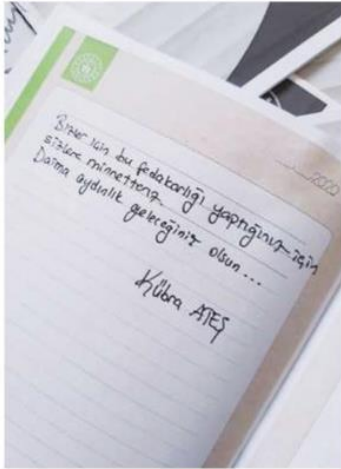 2020
Bizler için bu fedakarlığı yaptığınız için
sizlere minnettarız
Daima aydınlık geleceğiniz olsun...
Kübra ATEŞ